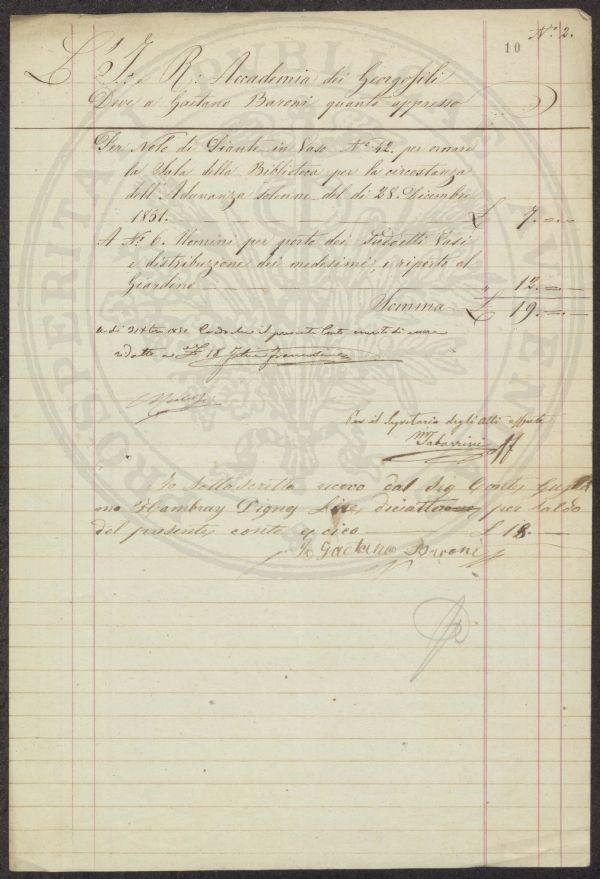 10 N.° 2.
L' I. e R. Accademia dei Georgofili
Deve a Gaetano Baroni quanto appresso
Per Nolo di Piante in Vaso N.° 42. per ornare
la Sala della Biblioteca per la circostanza
dell'Adunanza solenne del dì 28. Dicembre
1851. £ 7. — —
A N.° 6. Uomini per porto dei suddetti Vasi
e distribuzione dei medesimi, e riporto al
Giardino " 12. — —
Somma £ 19. — —
il presente Conto
ridotto a £ 18
Per il Segretario degli Atti assente
M Tabarrini
Io sottoscritto ricevo dal Sig Conte Gugliel
mo Cambray Digny Lire diciotto per saldo
del presente conto £ 18. —
Io Gaetano Baroni
PROSPERITATI PUBLICAE AUGENDAE